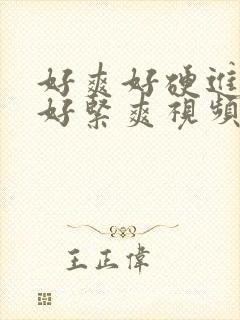 好爽好硬進
好緊爽視頻
王正偉